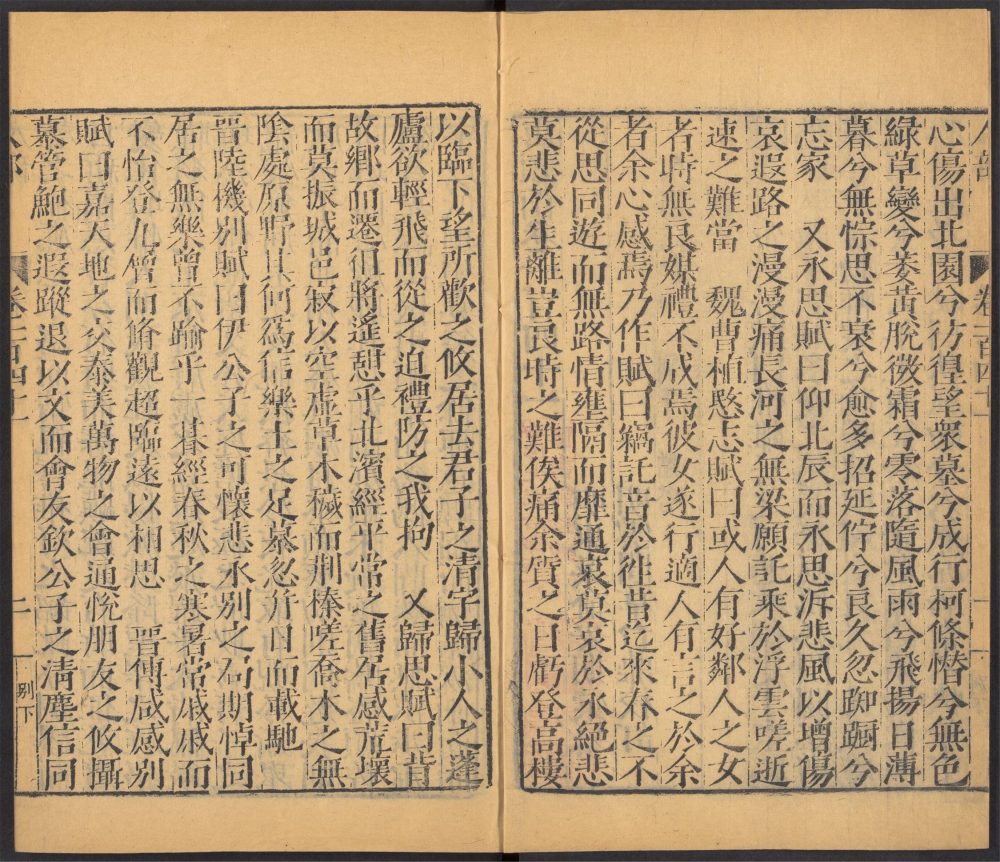 心傷出北園兮彷徨望衆墓兮成行柯條憯兮無色
綠草變兮萎黃脫微霜兮零落隨風雨兮飛揚日薄
暮兮無悰思不衰兮愈多招延佇兮良久忽踟蹰兮
忘家 又永思賦曰仰北辰而永思泝悲風以增傷
哀遐路之漫漫痛長河之無梁願託乘於浮雲嗟逝
速之難當 魏曹植愍志賦曰或人有好鄰人之女
者時無良媒禮不成焉彼女遂行適人有言之於余
者余心感焉乃作賦曰竊託音於往昔迄來春之不
從思同遊而無路情壅隔而靡通哀莫哀於永絕悲
莫悲於生離豈良時之難俟痛余質之日虧登高樓
以臨下望所歡之攸居去君子之清宇歸小人之蓬
廬欲輕飛而從之迫禮防之我拘 又歸思賦曰背
故鄉而遷徂將遙憩乎北濱經平常之舊居感荒壞
而莫振城邑寂以空虛草木穢而荆榛嗟喬木之無
陰處原野其何爲信樂土之足慕忽并日而載馳
晉陸機別賦曰伊公子之可懷悲永別之局期悼同
居之無樂曾不踰乎一朞經春秋之寒暑常戚戚而
不怡登九層而脩觀超臨遠以相思 晉傳咸感別
賦曰嘉天地之交泰美萬物之會通悅朋友之攸攝
慕管鮑之遐蹤退以文而會友欽公子之清塵信同
二
別下